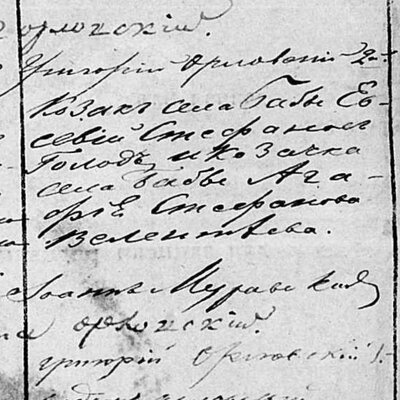 орловскій.
Григорій Орловскій 2.
Козакъ села Бабы Ев-
севій Стефановъ
Голодъ и козачка
села Бабы Ага-
фія Стефанова
Велентѣева.
Іоаннъ
орловскій.
григорій Орловскій 1.